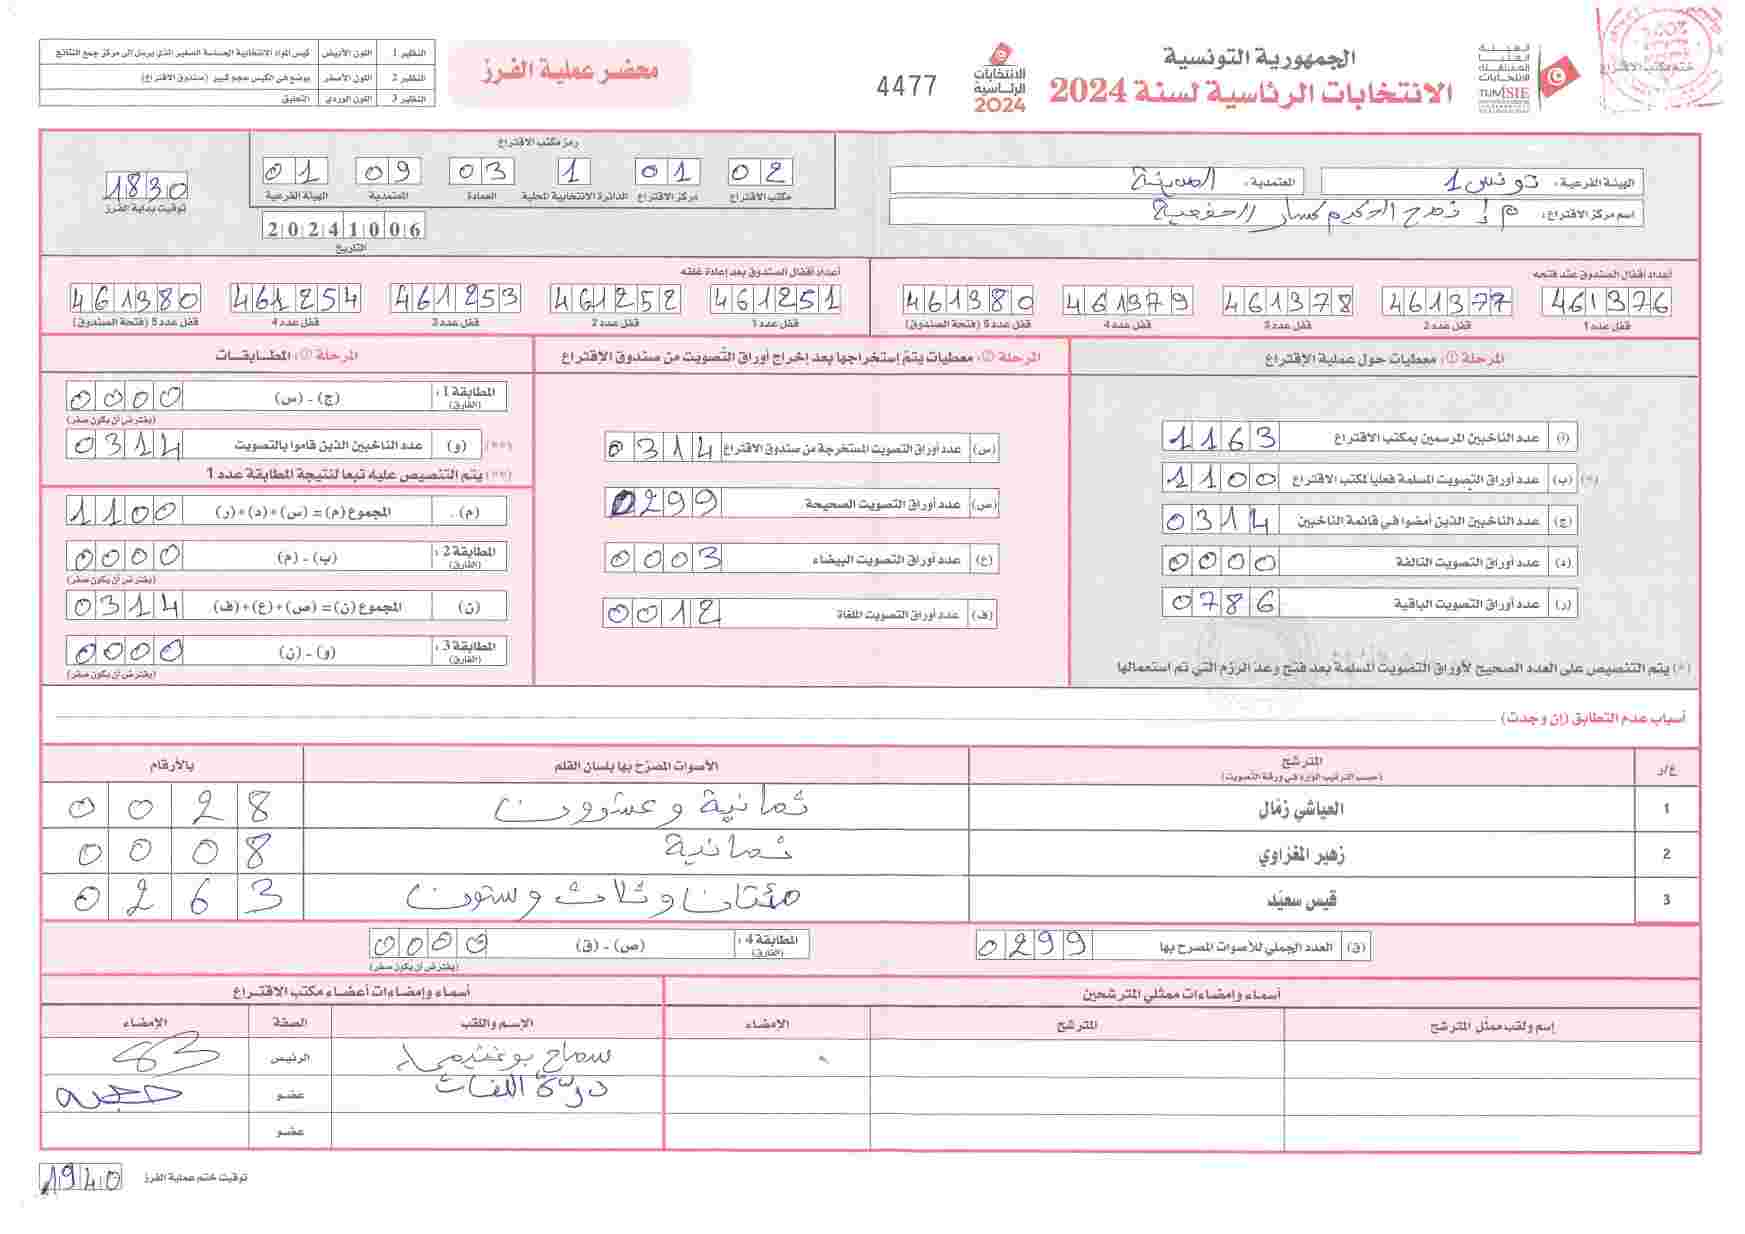 ختم مكتب الاقتراع
الهيئة
العليا
المستقلة
للانتخابات
TUNISIE
الجمهورية التونسية
الانتخابات الرئاسية لسنة 2024
الانتخابات
الرئاسية
2024
4477
محضر عملية الفرز
النظير 1 اللون الأبيض كيس المواد الانتخابية الحساسة الصغير الذي يرسل إلى مركز جمع النتائج
النظير 2 اللون الأصفر يوضع في الكيس حجم كبير (صندوق الاقتراع)
النظير 3 اللون الوردي التعليق
الهيئة الفرعية: تونس 1 المعتمدية: المدينة
اسم مركز الاقتراع:
رمز مكتب الاقتراع
02 01 1 03 09 01
مكتب الاقتراع مركز الاقتراع الدائرة الانتخابية المحلية العمادة المعتمدية الهيئة الفرعية
20241006
التاريخ
1830
توقيت بداية الفرز
أعداد أقفال الصندوق عند فتحه
461376 461377 461378 461379 461380
قفل عدد 1 قفل عدد 2 قفل عدد 3 قفل عدد 4 قفل عدد 5 (فتحة الصندوق)
أعداد أقفال الصندوق بعد إعادة غلقه
461251 461252 461253 461254 461380
قفل عدد 1 قفل عدد 2 قفل عدد 3 قفل عدد 4 قفل عدد 5 (فتحة الصندوق)
المرحلة ①: معطيات حول عملية الاقتراع
(أ) عدد الناخبين المرسمين بمكتب الاقتراع 1163
(*) (ب) عدد أوراق التصويت المسلمة فعليا لمكتب الاقتراع 1100
(ج) عدد الناخبين الذين أمضوا في قائمة الناخبين 0314
(د) عدد أوراق التصويت التالفة 0000
(ر) عدد أوراق التصويت الباقية 0786
(*) يتم التنصيص على العدد الصحيح لأوراق التصويت المسلمة بعد فتح وعد الرزم التي تم استعمالها
المرحلة ②: معطيات يتم إستخراجها بعد إخراج أوراق التصويت من صندوق الاقتراع
(س) عدد أوراق التصويت المستخرجة من صندوق الاقتراع 0314
(ص) عدد أوراق التصويت الصحيحة 0299
(ع) عدد أوراق التصويت البيضاء 0003
(ف) عدد أوراق التصويت الملغاة 0012
المطابقات
المطابقة 1: (الفارق) (ج) - (س) 0000
(يفترض أن يكون صفر)
(**) (و) عدد الناخبين الذين قاموا بالتصويت 0314
(**) يتم التنصيص عليه تبعا لنتيجة المطابقة عدد 1
(م). المجموع (م) = (س)+(د)+(ر) 1100
المطابقة 2: (الفارق) (ب) - (م) 0000
(يفترض أن يكون صفر)
(ن) المجموع (ن) = (ص)+(ع)+(ف) 0314
المطابقة 3: (الفارق) (و) - (ن) 0000
(يفترض أن يكون صفر)
أسباب عدم التطابق (إن وجدت)
ع/ر المترشح الأصوات المصرح بها بلسان القلم بالأرقام
(حسب الترتيب الوارد في ورقة التصويت)
1 العياشي زمّال ثمانية وعشرون 0028
2 زهير المغزاوي ثمانية 0008
3 قيس سعيّد مئتان وثلاث وستون 0263
(ق) العدد الجملي للأصوات المصرح بها 0299
المطابقة 4: (الفارق) (ص) - (ق) 0000
(يفترض أن يكون صفر)
أسماء وإمضاءات ممثلي المترشحين
إسم ولقب ممثل المترشح المترشح الامضاء
أسماء وإمضاءات أعضاء مكتب الاقتراع
الإسم واللقب الصفة الإمضاء
الرئيس
عضو
عضو
توقيت ختم عملية الفرز 1940